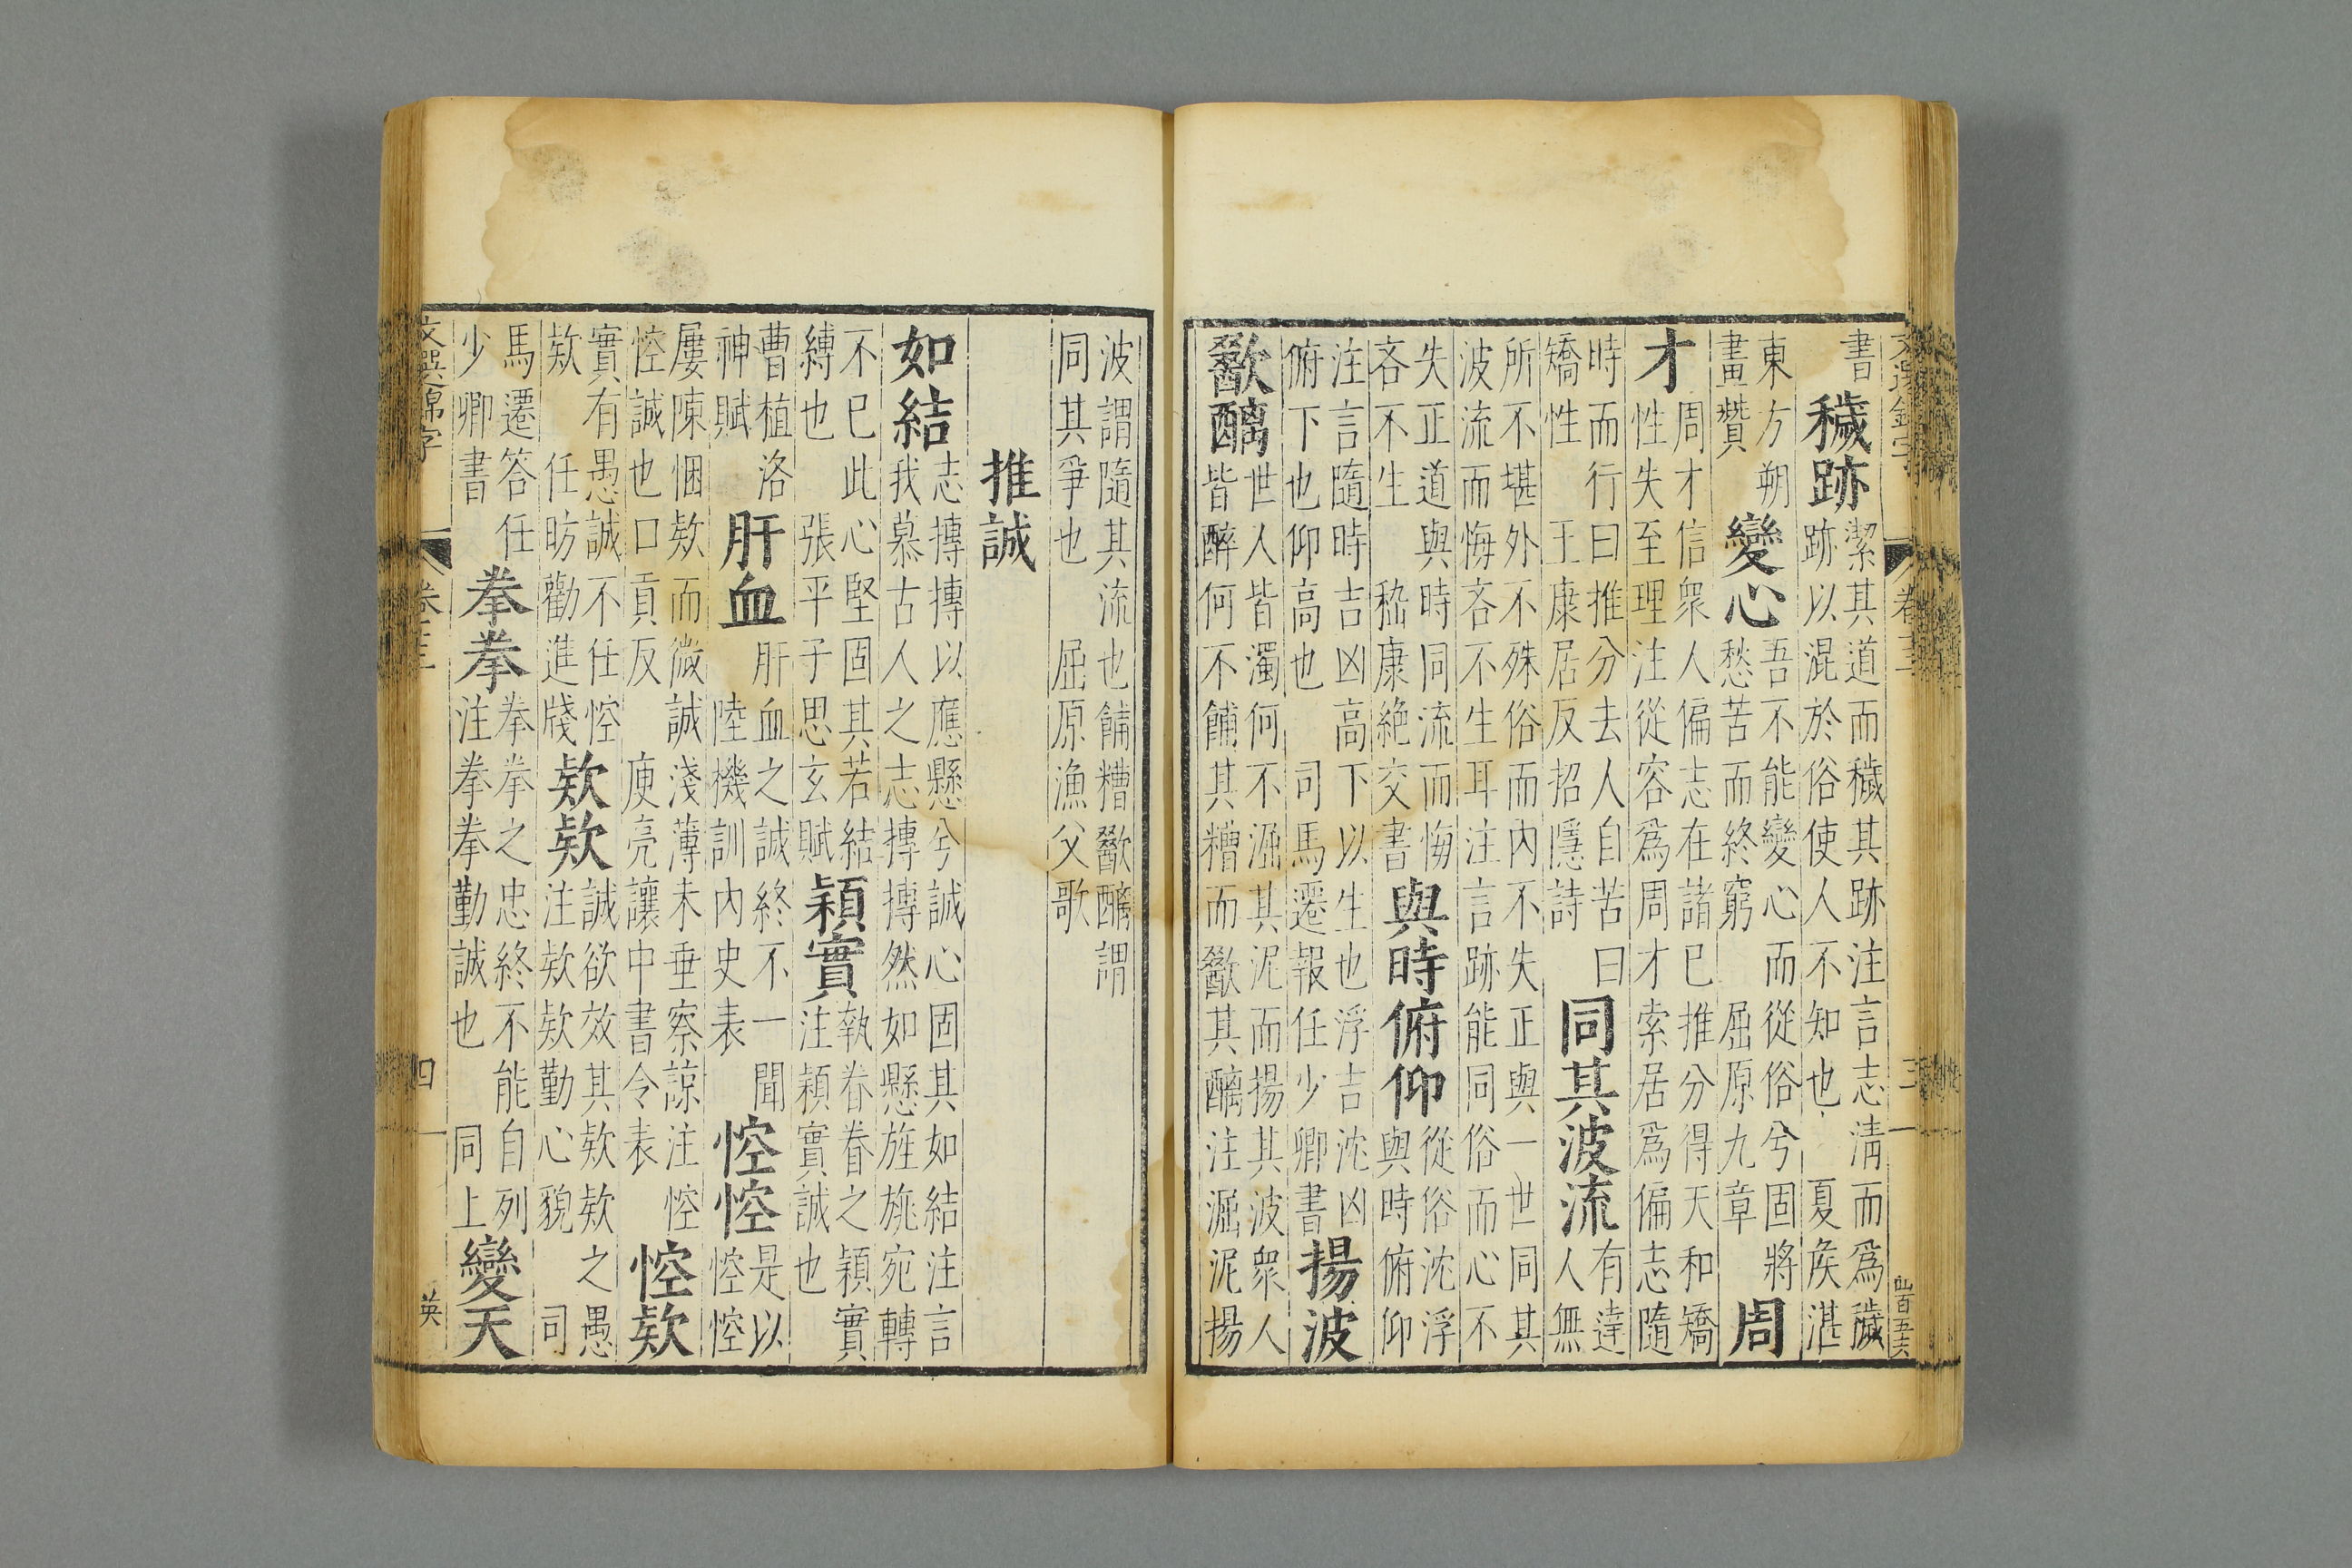 文選錦字 卷三 三
書
穢跡
潔其道而穢其跡注言志清而爲穢
跡以混於俗使人不知也 夏侯湛
東方朔
畫贊
變心
吾不能變心而從俗兮固將
愁苦而終窮 屈原九章
周
才
周才信衆人偏志在諸已推分得天和矯
性失至理注從容爲周才索居爲偏志隨
時而行曰推分去人自苦曰
矯性 王康居反招隱詩
同其波流
有達
人無
所不堪外不殊俗而內不失正與一世同其
波流而悔吝不生耳注言跡能同俗而心不
失正道與時同流而悔
吝不生 嵇康絶交書
與時俯仰
從俗沈浮
與時俯仰
注言隨時吉凶高下以生也浮吉沈凶
俯下也仰高也 司馬遷報任少卿書
揚波
歠醨
世人皆濁何不淈其泥而揚其波衆人
皆醉何不餔其糟而歠其醨注淈泥揚
波謂隨其流也餔糟歠醨謂
同其爭也 屈原漁父歌
推誠
如結
志摶摶以應懸兮誠心固其如結注言
我慕古人之志摶摶然如懸旌旄宛轉
不已此心堅固其若結
縛也 張平子思玄賦
穎實
執眷眷之穎實
注穎實誠也
曹植洛
神賦
肝血
肝血之誠終不一聞
陸機訓內史表
悾悾
是以
悾悾
屢陳悃欵而微誠淺薄未垂察諒注悾
悾誠也口貢反 庾亮讓中書令表
悾欵
實有愚誠不任悾
欵 任昉勸進牋
欵欵
誠欲效其欵欵之愚
注欵欵勤心貌 司
馬遷答任
少卿書
拳拳
拳拳之忠終不能自列
注拳拳勤誠也 同上
變天
文選錦字 卷三 四 英